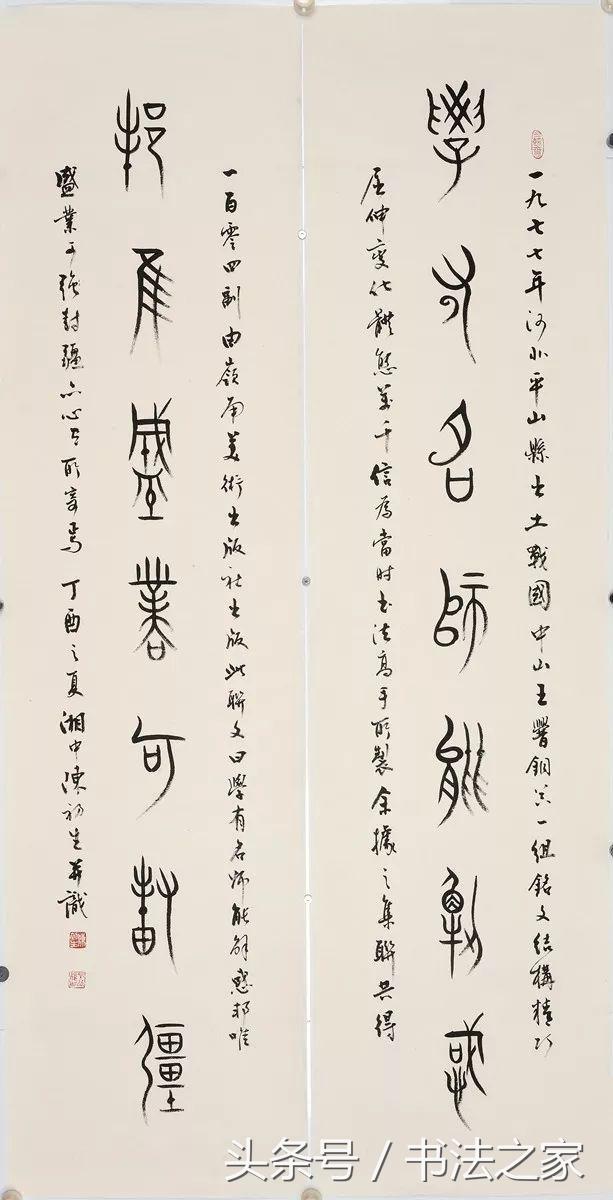 一九七七年河北平山縣出土戰國中山王銅器一組銘文結構精巧
學有名師能解惑
屈伸變化體態萬千信為當時書法高手所製余據之集聯共得
一百零四副由嶺南美術出版社出版此聯文曰學有名師能解惑邦唯
邦隹盛業可封彊
盛業可強封疆亦心有所寄焉 丁酉之夏湘中陳初生并識
头条号 / 书法之家